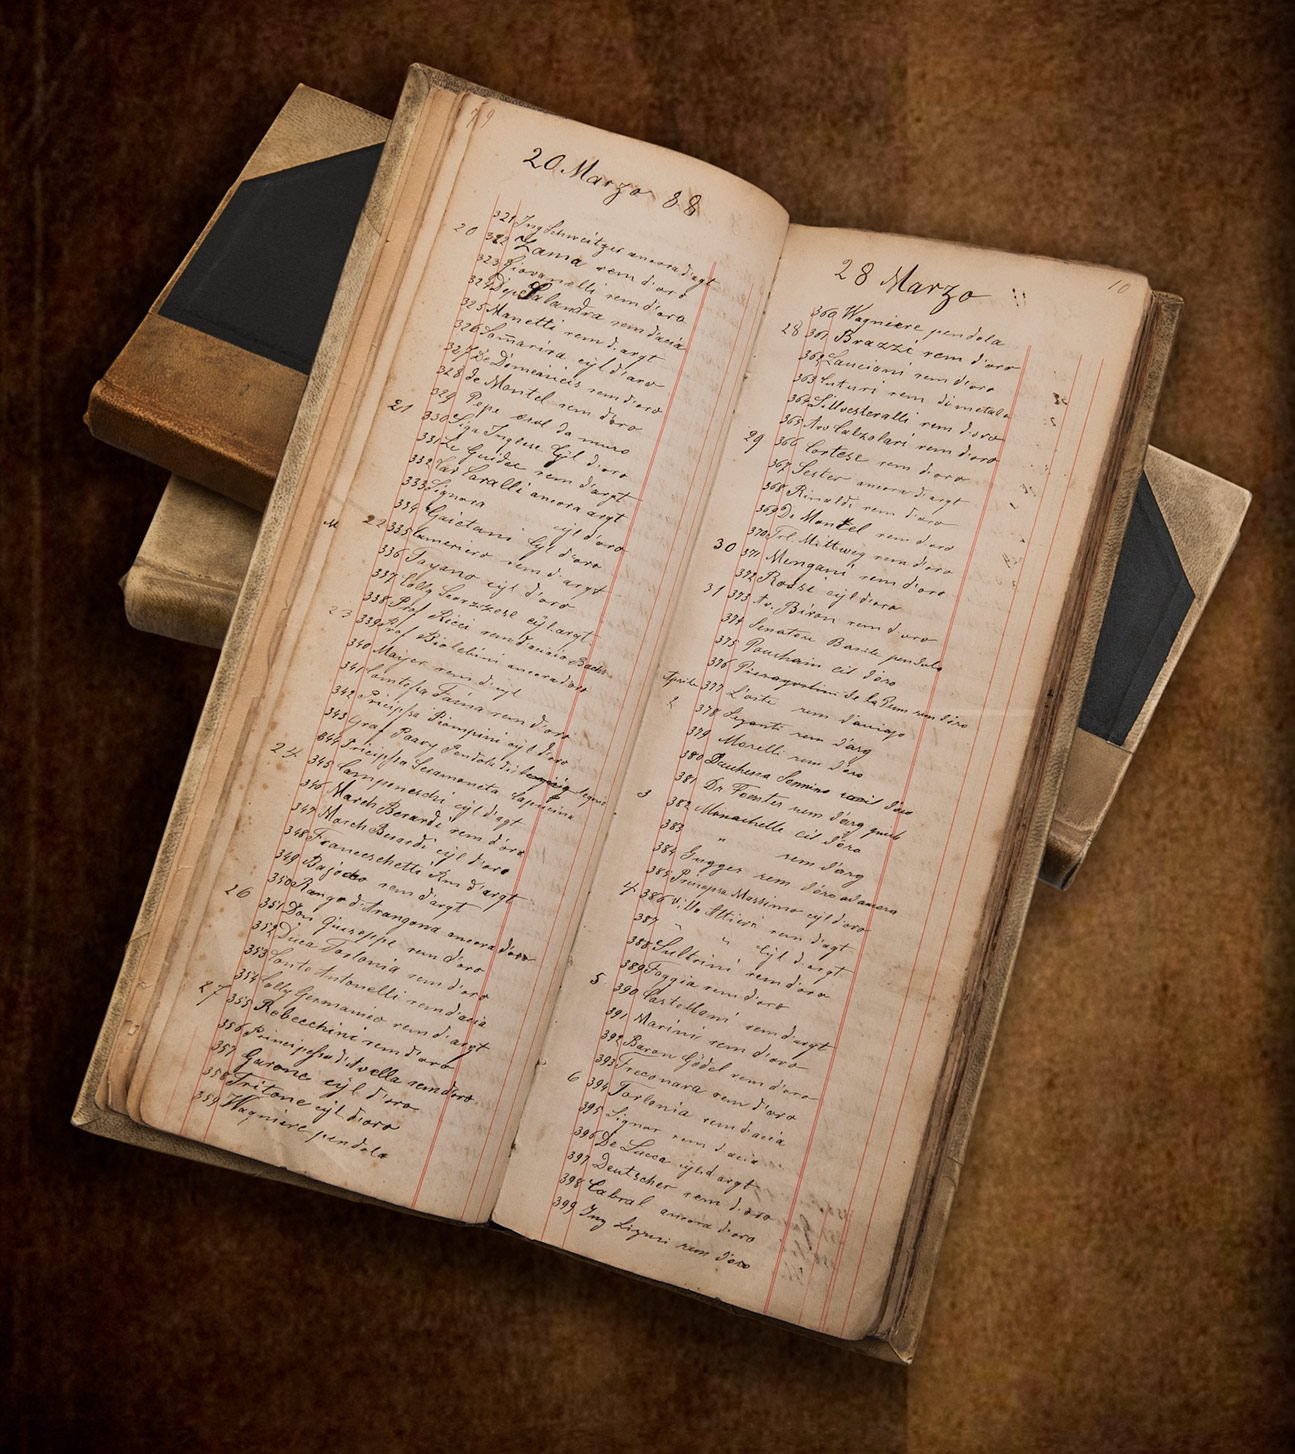 20 Marzo 88
321 Ing Schweitzer ancora d'argt
20 322 Zama rem d'oro
323 Giovanalli rem d'oro
324 Dep Salandra rem d'acia
325 Manetti rem d'argt
326 Sommariva cyl d'oro
327 De Domenicis rem d'oro
328 de Montel rem d'oro
329 Pepe orol da muro
21 330 Siga Inglese Cyl d'oro
331 Le Guidee rem d'argt
332 Cav Caralli ancora argt
333 Signora cyl d'oro
334 Gaietani Cyl d'oro
M 22 335 Cameriero rem d'argt
336 Tayano cyl d'oro
337 Colly cyl argt
338 Prof Ricci rem d'acciaio
23 339 Prof ancora d'oro
340 Mayer rem d cyl
341 Contessa Faina rem d'oro
342 Pricipssa Piampini cyl d'oro
343 Graf Paary Pendola
24 344 Pricipssa
345 Camponeschi cyl d'agt
346 March Berardi rem d'oro
347 March Berardi cyl d'oro
348 Franceschetti Rm d'argt
349 Bajocco rem d'argt
26 350 Rango d'Arangona ancora d'oro
351 Dori Giuseppe rem d'oro
352 Duca Torlonia rem d'oro
353 Conte Antonelli rem d'acia
354 Colly Germanico rem d'argt
27 355 Rebecchini rem d'oro
356 Principessa di Avella rem d'oro
357 Garonc cyl d'oro
358 Tritone cyl d'oro
359 Wagniere pendola
10
28 Marzo "
360 Wagniere pendola
28 361 Brazzi rem d'oro
362 Laucioni rem d'oro
363 rem di metalo
364 Silvesteralli rem d'oro
365 Avv Calzolari rem d'oro
29 366 Cortese rem d'oro
367 Sester ancora d'argt
368 Rinaldi rem d'oro
369 De Montel rem d'oro
370 Frl. Mittweg rem d'oro
30 371 Mengani rem d'oro
372 Rossi cyl d'oro
31 373 Av. Biron rem d'oro
374 Senatore Basile pendula
375 Pouchain cil d'oro
376 Pieragostini de la Penn rem d'oro
Aprile 377 L'oste rem d'acciajo
2 378 Seganti rem d'arg
379 Morelli rem d'oro
380 Duchessa Sennino remil d'oro
381 Dr Forster rem d'arg
3 382 Monachelli cil d'oro
383 " rem d'arg
384 Gugger rem d'oro ad ancora
385 Pricipssa Massimo cyl d'oro
4 386 Villa Altieri rem d'agt
387 " " cyl d'argt
388 Sulbrini rem d'oro
389 Foggia rem d'oro
5 390 Castellani rem d'argt
391 Marini rem d'oro
392 Baron Gödel rem d'oro
393 Treconara rem d'oro
6 394 Torlonia rem d'acia
395 Signor rem d'acia
396 De Lucca cyl d'argt
397 Deutscher rem d'oro
398 Cabral ancora d'oro
399 Ing Liguri rem d'oro